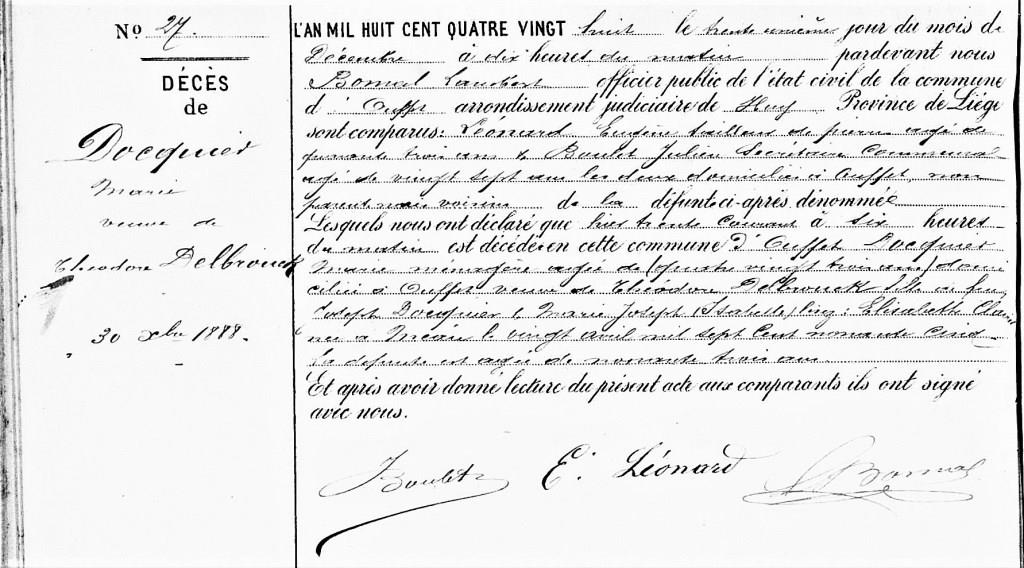 No 27.
DÉCÈS
de
Docquier
Marie
veuve de
Théodore Delbrouck
30 Xbre 1888.
L'AN MIL HUIT CENT QUATRE VINGT huit le trente unième jour du mois de
Décembre à dix heures du matin pardevant nous
Bomal Lambert officier public de l'état civil de la commune
d' Ouffet arrondissement judiciaire de Huy Province de Liége
sont comparus: Léonard Eugène tailleur de pierre agé de
trois ans & Boulet Julien Secrétaire Communal
agé de vingt sept ans les deux domiciliés à Ouffet, non
parent mais voisins de la défunte ci-après dénommée
Lesquels nous ont déclaré que hier trente courant à six heures
du matin est décédée en cette commune d' Ouffet Docquier
Marie ménagère agée de (quatre vingt trois ans) domi
ciliée à Ouffet veuve de Théodore Delbrouck fille de feu
Joseph Docquier & Marie Joseph (Isabelle) Elisabeth
née à Méan le vingt avril mil sept Cent nonante cinq
la défunte est agée de nonante trois ans.
Et après avoir donné lecture du présent acte aux comparants ils ont signé
avec nous.
JBoulet E. Léonard LBomal